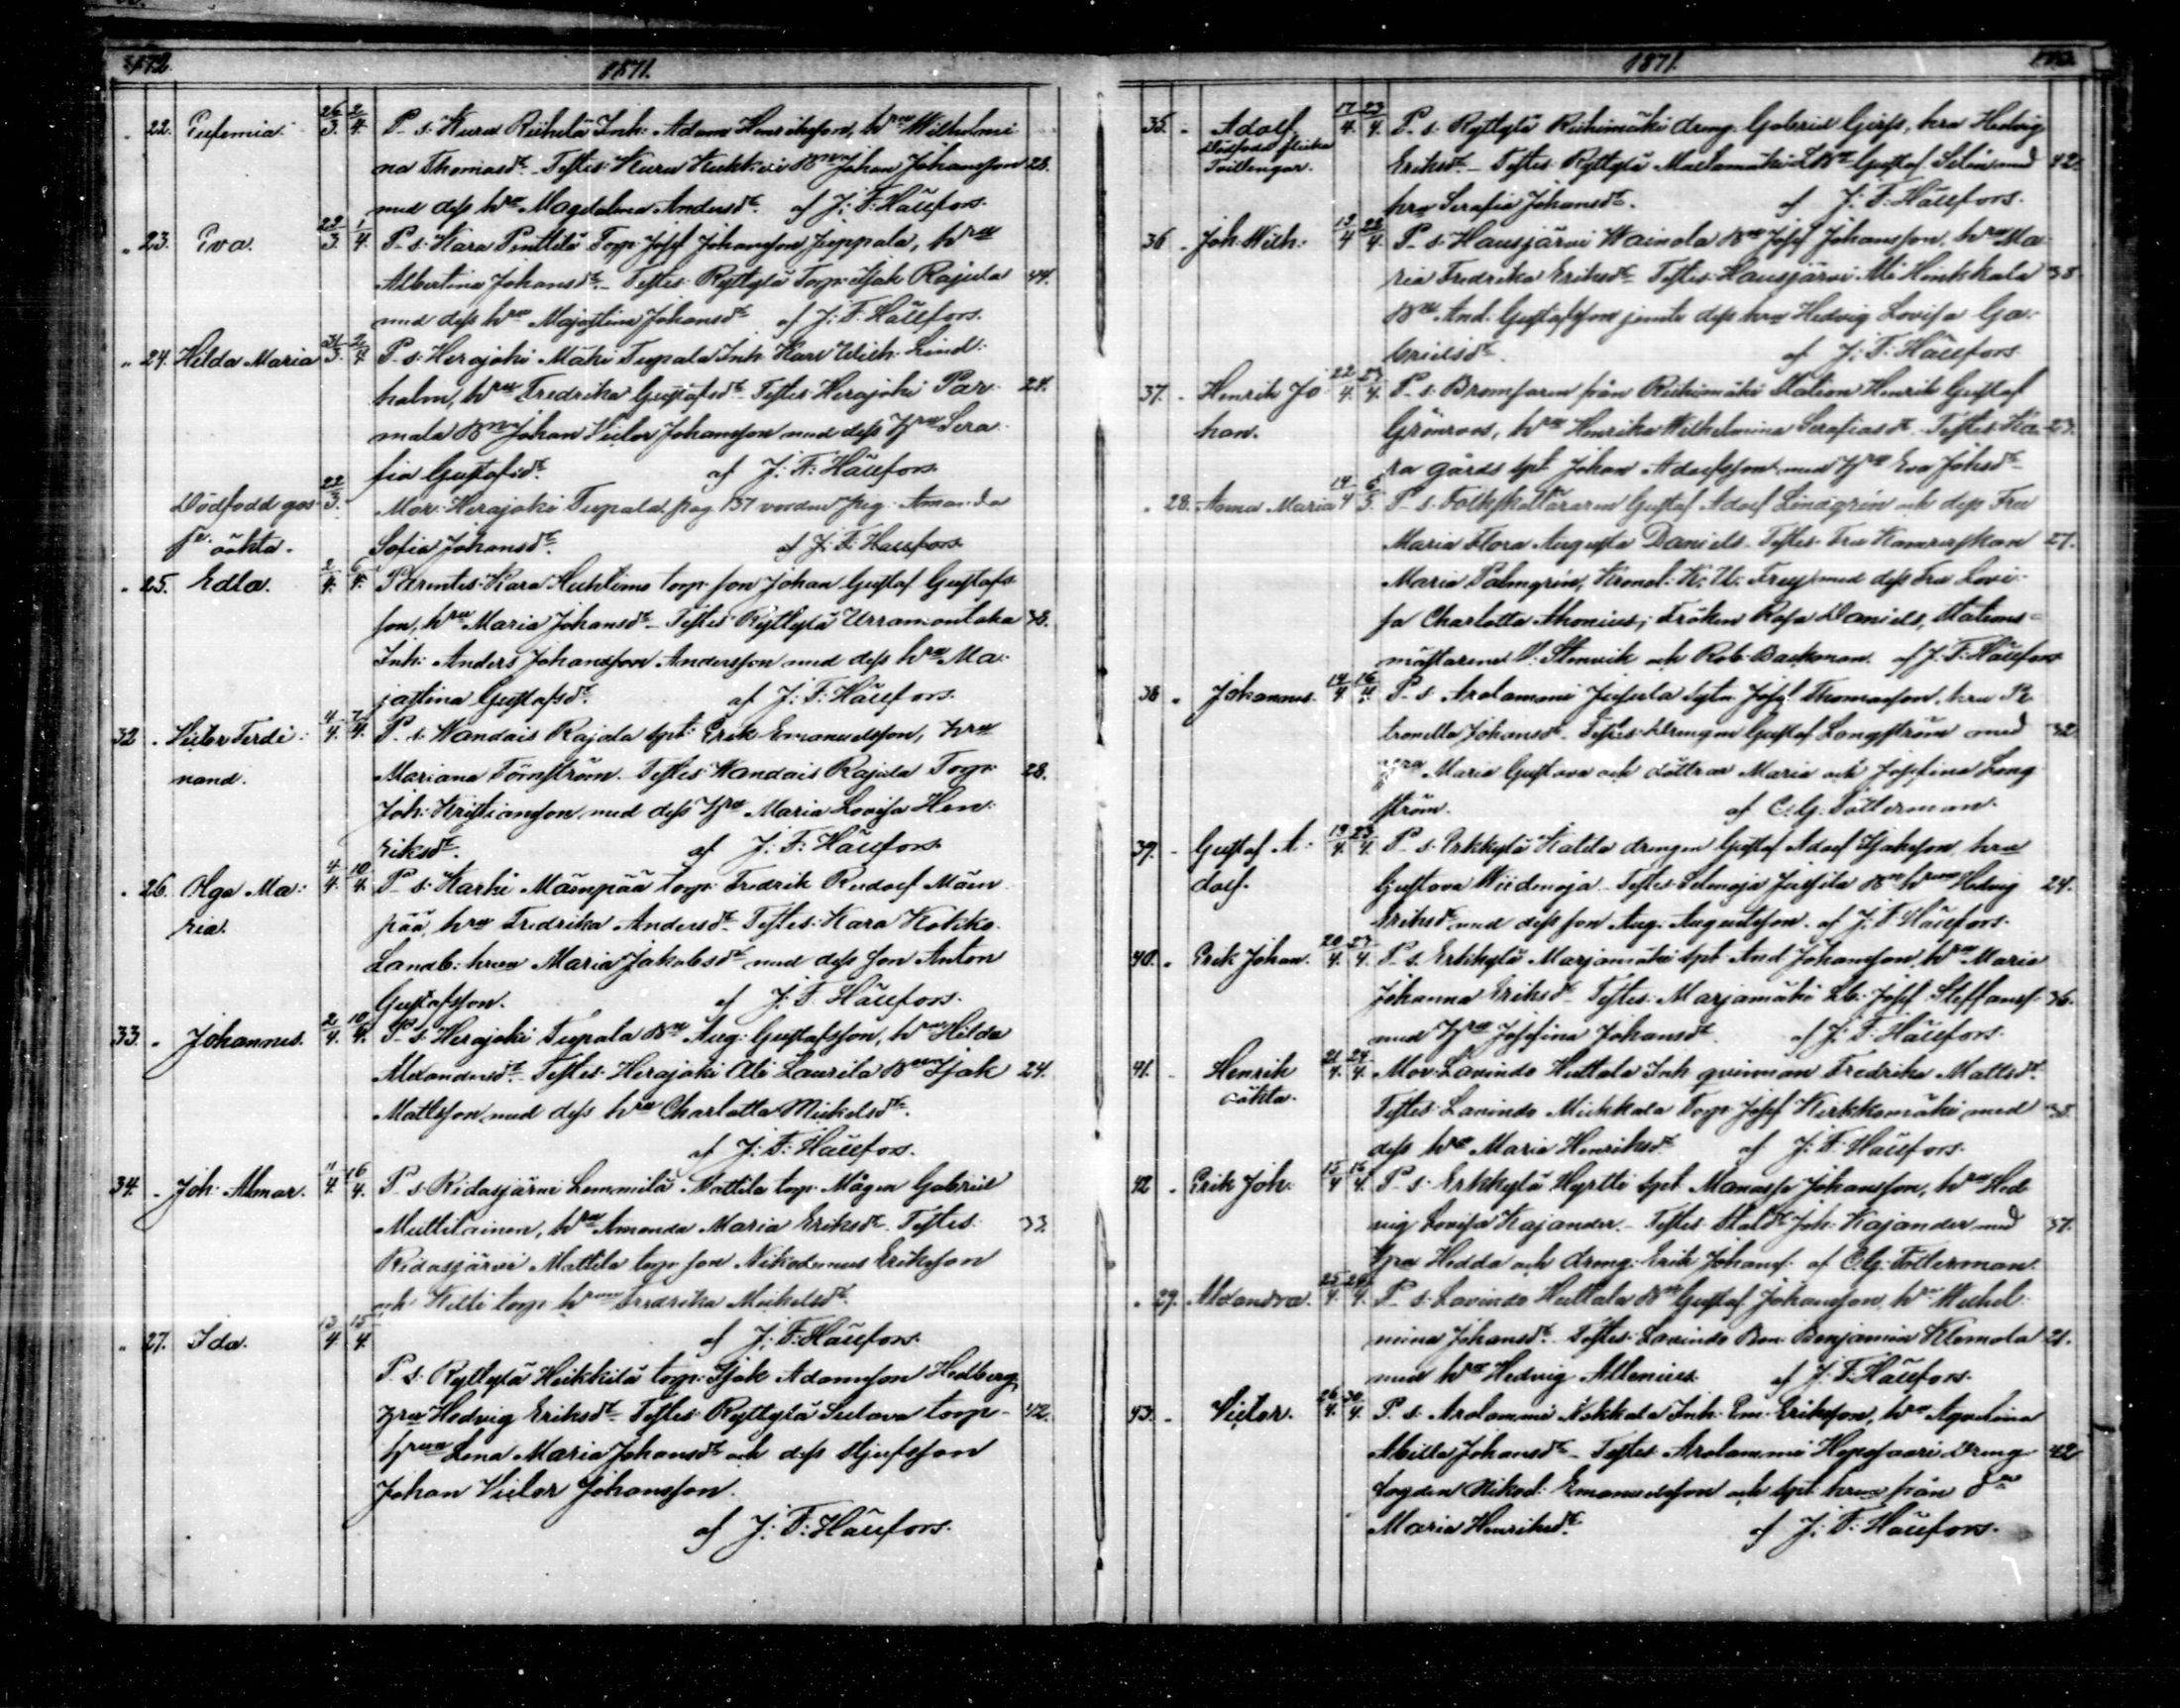 172. 1871.
" 22. Eufemia. 26/3. 2/4. P. s: Kura Riihelä Inh: Adam Henriksson, hru Wilhelmi
na Thomasdr. Testes: Kuru Kukkoi Bn Johan Johansson 28.
med dess hru Magdalena Andersdr. af J: F: Hällfors.
" 23. Eva. 22/3. 1/4. P. s: Kara Penttilä Torp: Josef Johansson Juppala, hru
Albertina Johansdr. Testes: Ryttylä Torp: Isak Rajula 44.
med dess hru Majastina Johansdr. af J: F: Hällfors.
" 24. Hilda Maria 31/3. 2/4. P. s: Herajoki Mäki Tupala Inh: Karl Wilh: Lind:
holm, hru Fredrika Gustafsdr. Testes Herajoki Par 24.
mala Bn Johan Victor Johansson med dess Hru Sera
fia Gustafsdr. af J: F: Hällfors.
Dödfödd gos 22/3. Mor: Herajoki Tupala pag 137 vordne pig: Amanda
se oäkta. Sofia Johansdr. af J: F: Hällfors.
" 25. Edla. 2/4. 6/4. Parentes: Kara Huhtimo torp: son Johan Gustaf Gustafs
son, hru Maria Johansdr. Testes Ryttylä Urramontaka 38.
Inh: Anders Johansson Andersson med dess hru Ma:
jastina Gustafsdr. af J: F: Hällfors.
32 " Victor Ferdi: 4/4. 7/4. P. s. Wandais Rajala spt: Erik Emanuelsson, Hru
nand. Mariana Törnström. Testes Wandais Rajala Torp: 28.
Joh: Kristiansson med dess Hru Maria Lovisa Hen:
riksdr. af J: F: Hällfors.
" 26. Olga Ma: 4/4. 10/4. P. s: Karhi Mämpää torp: Fredrik Rudolf Mäm
ria. pää, hru Fredrika Andersdr. Testes: Kara Kokko
Landb: hrun Maria Jakobsdr med dess son Anton
Gustafsson. af J: F: Hällfors.
33. " Johannes. 2/4. 10/4. P. s: Herajoki Tupala Bn Aug: Gustafsson, hru Hilda
Alexandersdr. Testes: Herajoki Ali Laurila Bn Isak 24.
Mattsson med dess hru Charlotta Mickelsdr.
af J: F: Hällfors.
34. " Joh: Almar. 11/4. 16/4. P. s: Ridasjärvi Lemmilä Mattila torp: Mågen Gabriel
Multilainen, hru Amanda Maria Eriksdr. Testes 33.
Ridasjärvi Mattila torp: son Nikodemus Eriksson
och Kelli torp: hrun Fredrika Mickelsdr.
" 27. Ida. 13/4 15/4. af J: F: Hällfors.
P. s: Ryttylä Heikkilä torp: Isak Adamsson Hedberg
hru Hedvig Eriksdr. Testes Ryttylä Sulova torp- 42.
hrun Lena Maria Johansdr och dess stjufsson
Johan Victor Johansson.
af J: F: Hällfors.
1871. 173.
35. " Adolf 17/4. 23/4. P. s: Ryttylä Riihimäki dreng: Gabriel Girss, hru Hedvig
Dödfödd flicka Eriksdr. Testes: Ryttylä Maalamäki Gustaf Selin med 42.
Tvillingar. hru Serafia Johansdr. af J: F: Hällfors.
36 " Joh: Wilh: 13/4 22/4. P. s: Hausjärvi Wainola Bn Josef Johansson, hru Ma:
ria Fredrika Eriksdr. Testes: Hausjärvi Ali Hinkkala 38
Bn And: Gustafsson jemte dess hru Hedvig Lovisa Ga:
brielsdr. af J: F: Hällfors
37. " Henrik Jo 22/4. 23/4. P. s: Bromsaren från Riihimäki Station Henrik Gustaf
han. Grönroos, hru Henrika Wilhelmina Serafiasdr. Testes Ka. 23.
ra gårds spt: Johan Adolfsson med Hru Eva Johsdr
" 28. Anna Maria 14/4 6/5. P. s: Folkskolläraren Gustaf Adolf Lindgrén och dess Fru
Maria Flora Augusta Daniels. Testes: Fru Kamrerskan 27.
Maria Palmgrén, Kronol: K: W: Frey med dess Fru Lovi:
sa Charlotta Ahonius, Fröken Rosa Daniels, Stations-
mästarene V: Stenvik och Rob: Backman. af J: F: Hällfors
38 " Johannes. 14/4 16/4. P. s: Arolammi Jussila sytn: Josef Thomasson, hru Pe
tronella Johansdr. Testes: drengen Gustaf Langström med 32
Hru Maria Gustava och döttrar Maria och Josefina Lang
ström. af C. G. Fätterman.
39. " Gustaf A: 19/4. 23/4. P. s: Erkkylä Katila drengen Gustaf Adolf Isaksson, hru
dolf. Gustava Wiidenoja. Testes: Selmoja Jussila Bn hrun Hedvig 24.
Eriksdr med dess son Aug: Augustsson. af J: F: Hällfors.
40. " Erik Johan. 20/4. 27/4. P. s: Erkkylä Marjamäki spt And: Johansson, hru Maria
Johanna Eriksdr. Testes: Marjamäki Lb: Josef Steffanss: 36.
med Hru Josefina Johansdr. af J: F: Hällfors.
41. " Henrik 21/4. 24/4. Mor: Lavindo Huttala Inh: qvinnan Fredrika Mattsdr.
oäkta. Testes: Lavindo Mickkala Torp: Josef Kirkkomäki med 38
dess hru Maria Henriksdr. af J: F: Hällfors.
42 " Erik Joh: 15/4 16/4. P. s: Erkkylä Hyrtti spt: Manasse Johansson, hru Hed
vig Lovisa Kajander. Testes: Joh: Kajander med 37.
hru Hedda och dreng: Erik Johans: af C. G. Fätterman.
" 29. Alexandra. 25/4. 29/4. P. s: Lavindo Huttala Bn Gustaf Johansson, hru Wilhel:
mina Johansdr. Testes: Lavindo Bon: Benjamin Klemola 21.
med hru Hedvig Allenius. af J: F: Hällfors.
43. " Victor. 26/4. 30/4. P. s: Arolammi Nokkala Inh: Em: Eriksson, hru Agnetina
Abilla Johansdr. Testes: Arolammi Haposaari Dreng 42
Nikod: Emanuelsson och spt: hrun från
Maria Henriksdr. af J: F: Hällfors.